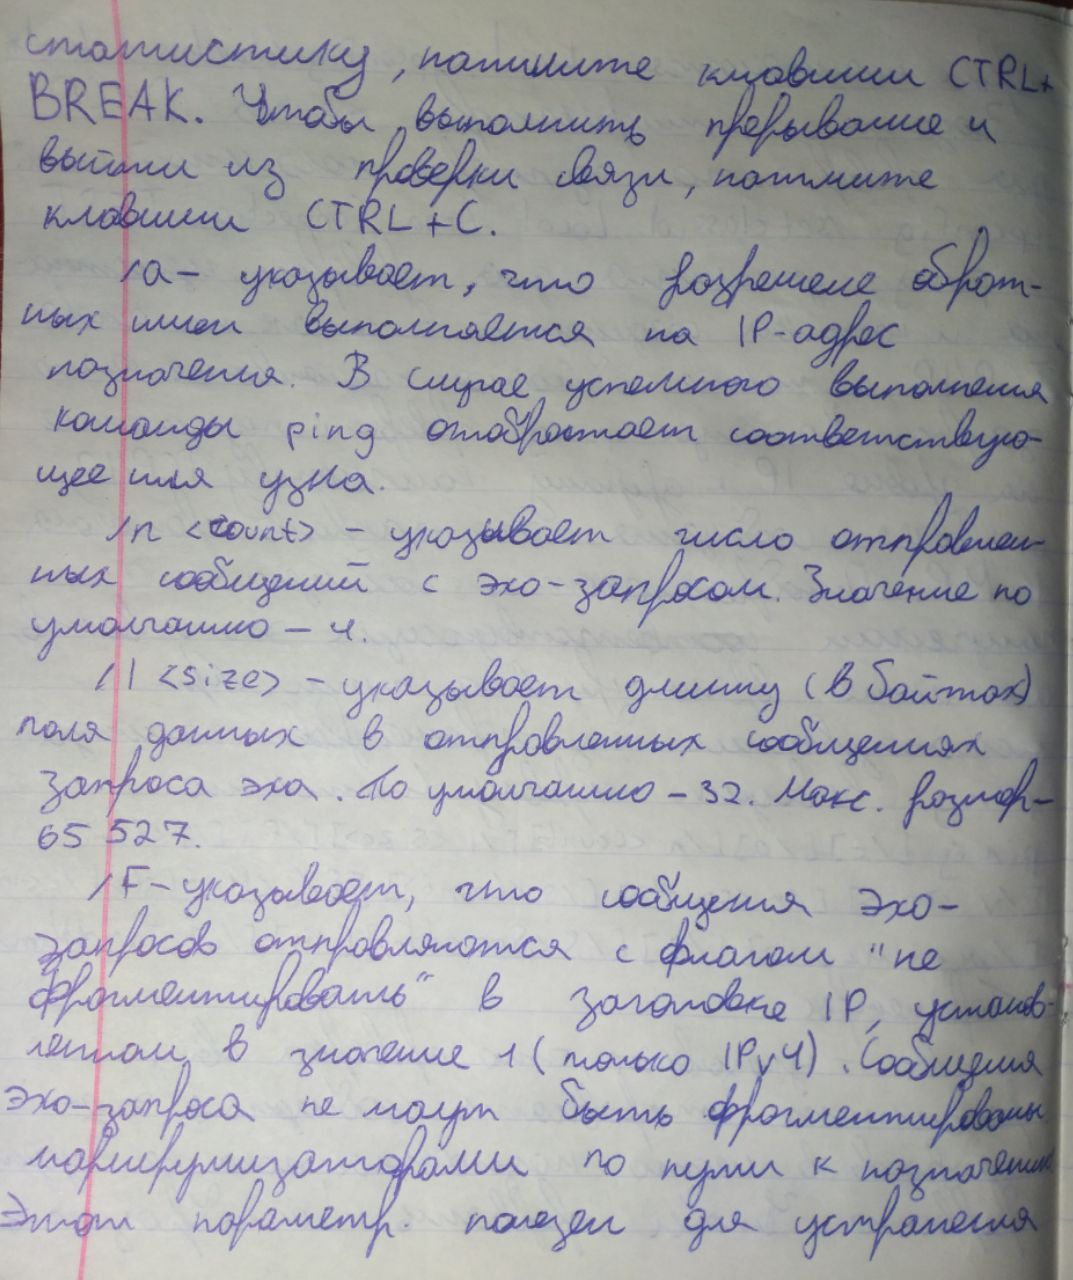 статистику, нажмите клавиши CTRL+
BREAK. Чтобы выполнить прерывание и
выйти из проверки связи, нажмите
клавиши CTRL+C.
/a - указывает, что разрешение обрат-
ных имен выполняется на IP-адрес
назначения. В случае успешного выполнения
команды ping отображает соответствую-
щее имя узла.
/n <count> - указывает число отправлен-
ных сообщений с эхо-запросом. Значение по
умолчанию - 4.
/l <size> - указывает длину (в байтах)
поля данных в отправленных сообщениях
запроса эха. По умолчанию - 32. Макс. размер-
65 527.
/F - указывает, что сообщения эхо-
запросов отправляются с флагом "не
фрагментировать" в заголовке IP, установ-
ленном в значение 1 (только IPv4). Сообщения
эхо-запроса не могут быть фрагментированы
маршрутизаторами по пути к назначению
Этот параметр. полезен для устранения